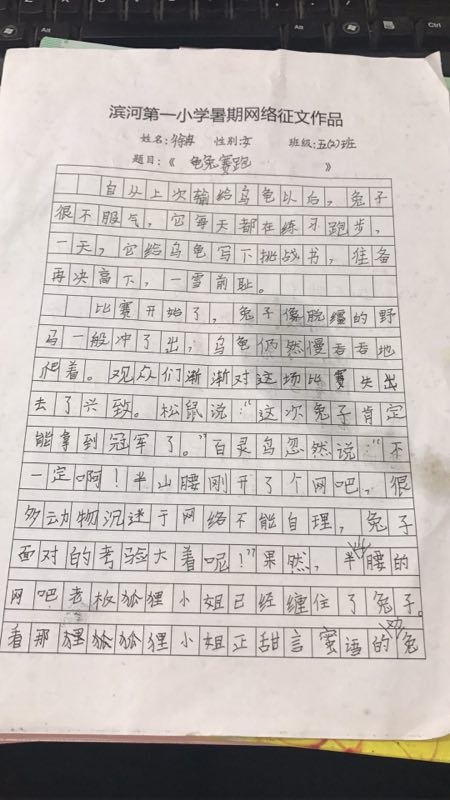 滨河第一小学暑期网络征文作品
姓名:徐冉 性别:女 班级:五(2)班
题目:《 龟兔赛跑 》
自从上次输给乌龟以后，兔子
很不服气，它每天都在练习跑步，
一天，它给乌龟写下挑战书，准备
再决高下，一雪前耻。
比赛开始了，兔子像脱缰的野
马一般冲了出，乌龟仍然慢吞吞地
爬着。观众们渐渐对这场比赛失出
去了兴致。松鼠说:“这次兔子肯定
能拿到冠军了。”百灵鸟忽然说:“不
一定啊！半山腰刚开了个网吧，很
多动物沉迷于网络不能自理，兔子
面对的考验大着呢！”果然，半山腰的
网吧老板狐狸小姐已经缠住了兔子。
看那狸狐狐狸小姐正甜言蜜语的对兔